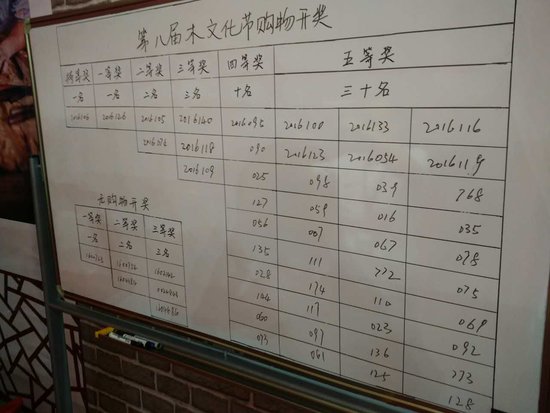 第八届木文化节购物开奖
特等奖 一等奖 二等奖 三等奖 四等奖 五等奖
一名 一名 二名 三名 十名 三十名
2016106 2016126 2016105 2016140 2016095 2016108 2016133 2016116
2016118 090 2016123 2016054 2016119
2016109 025 098 039 768
127 059 016 035
056 007 067 078
135 111 772 075
028 174 110 069
144 117 023 092
060 097 136 773
073 061 125 128
无购物开奖
一等奖 二等奖 三等奖
一名 二名 三名